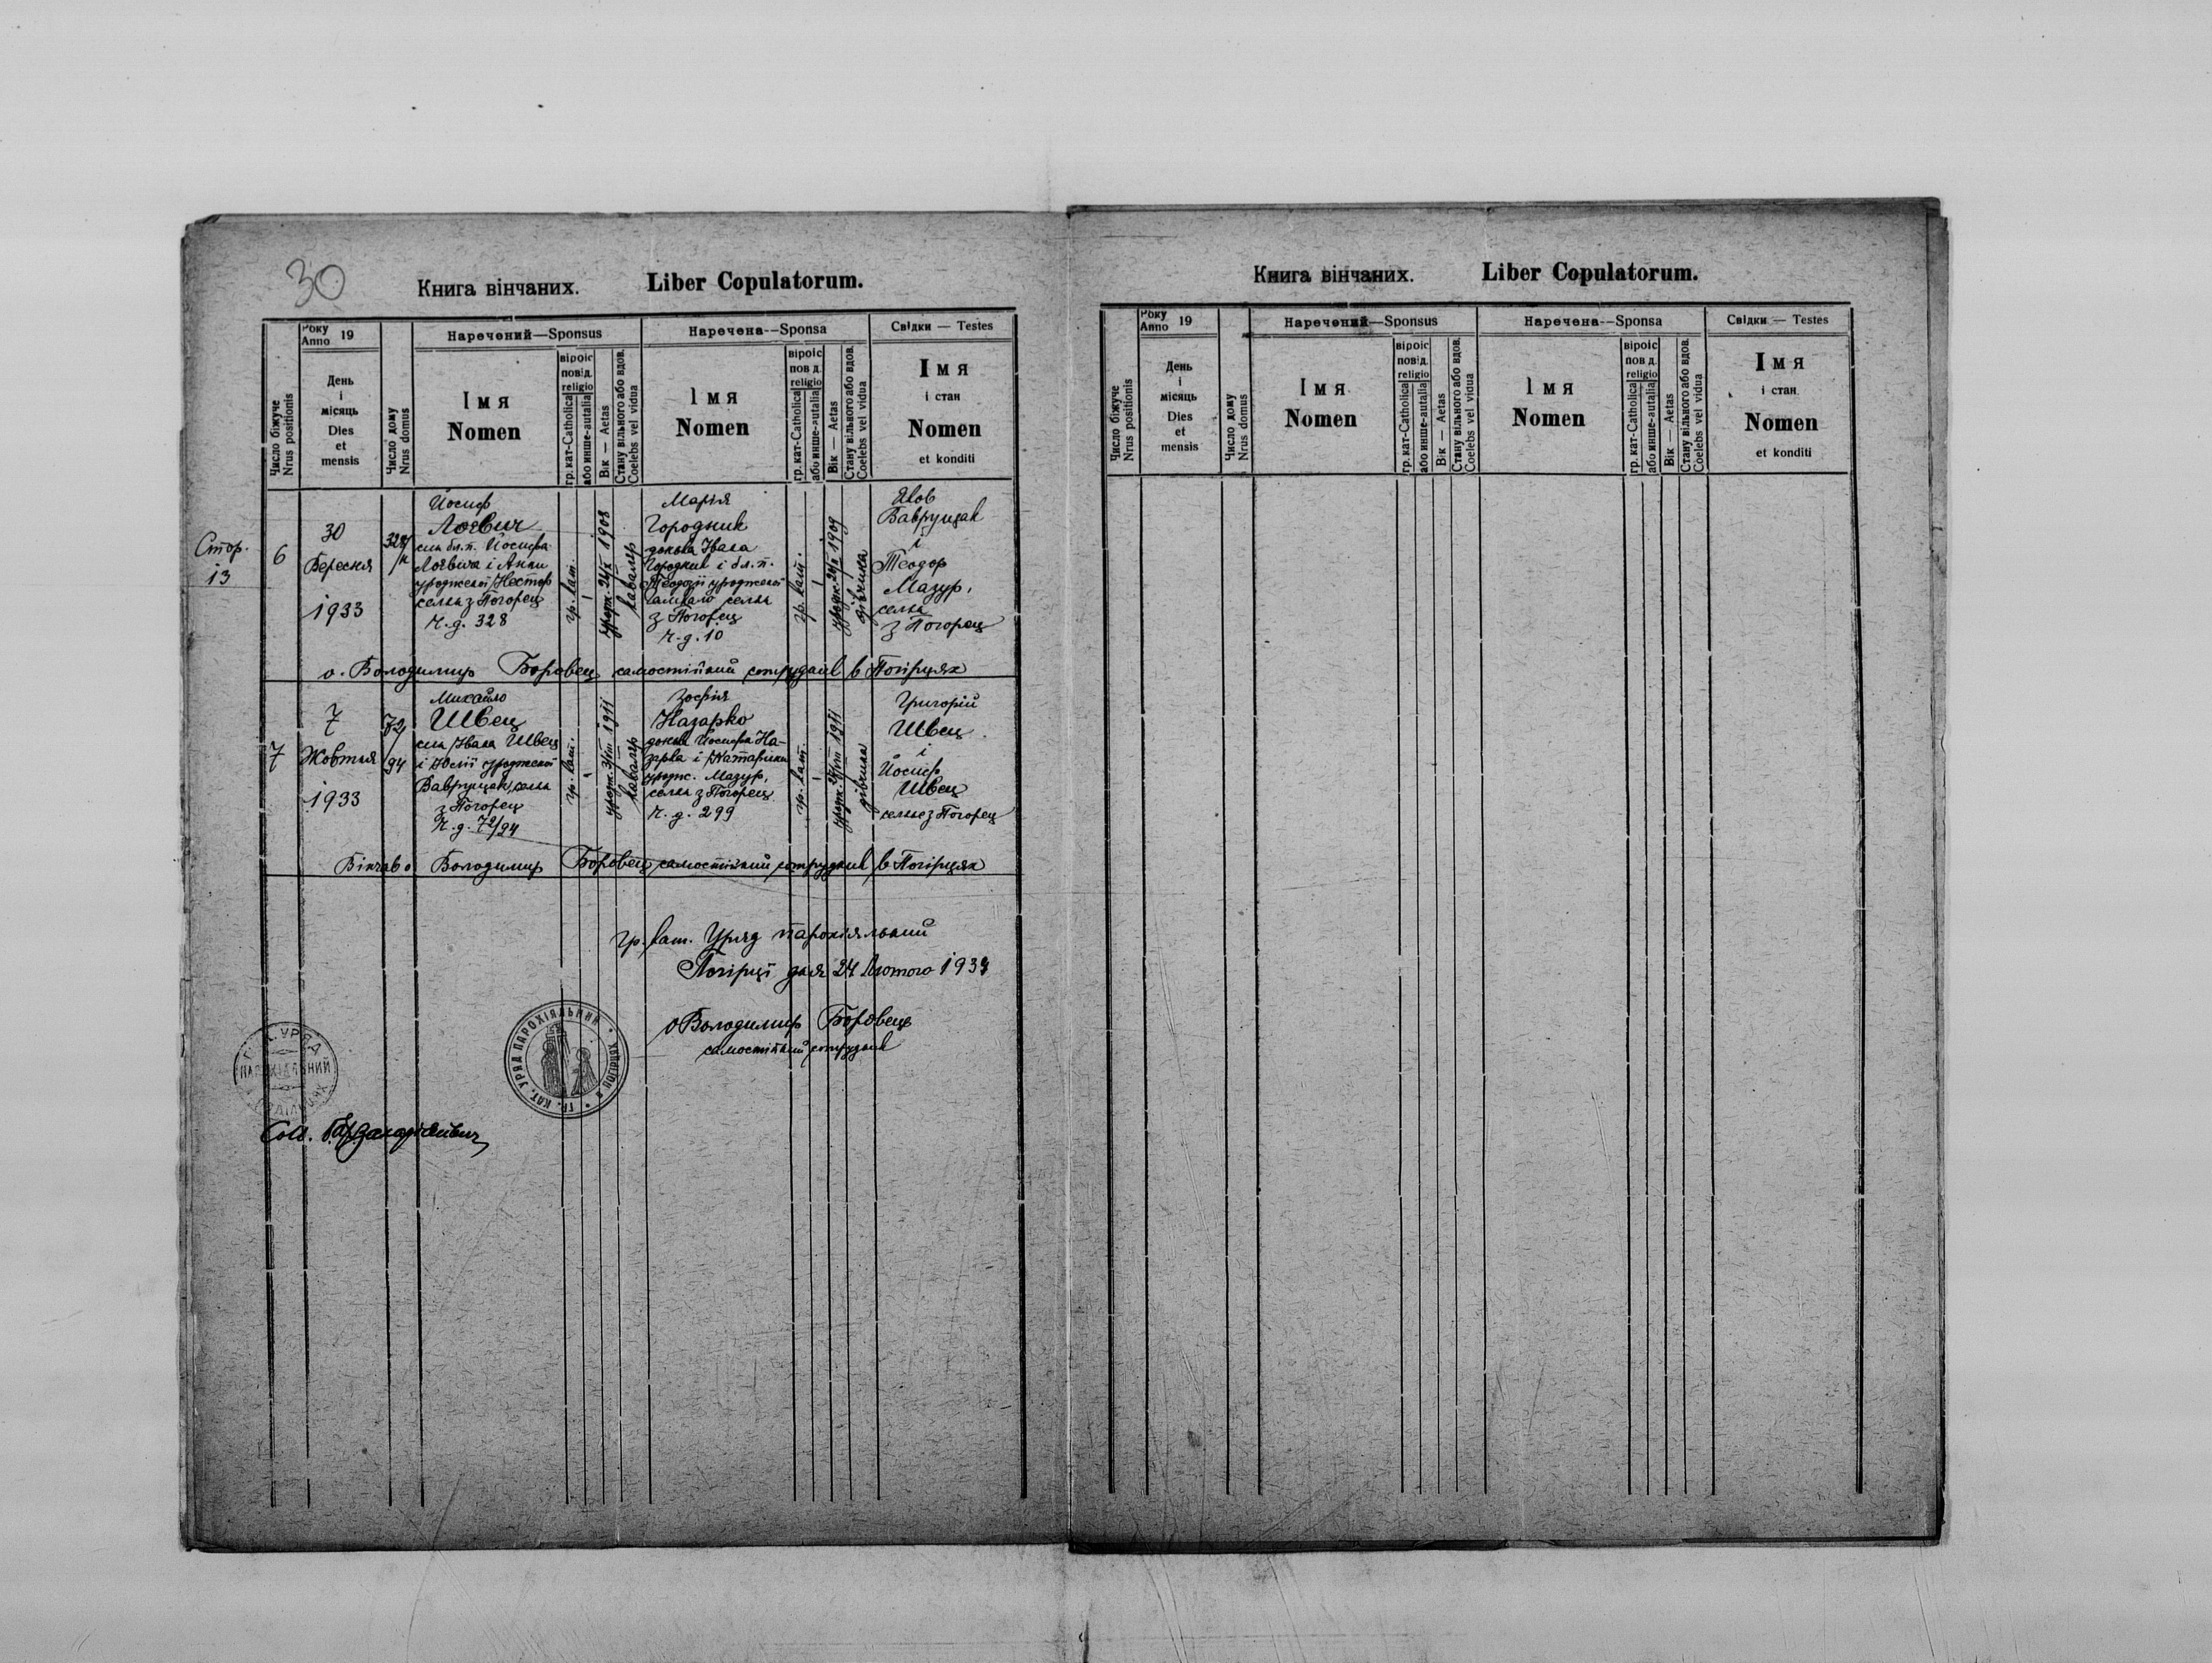 30
Книга вінчаних. Liber Copulatorum.
Року Anno 19
Наречений—Sponsus
Наречена--Sponsa
Свідки — Testes
Число біжуче
Nrus positionis
День
і
місяць
Dies
et
mensis
Число дому
Nrus domus
Імя
Nomen
віроіс
повід.
religio
гр. кат-Catholica
або инше-autalia
Вік — Aetas
Стану вільного або вдов.
Coelebs vel vidua
Імя
Nomen
віроіс
пов д.
religio
гр. кат-Catholica
або инше-autalia
Вік — Aetas
Стану вільного або вдов.
Coelebs vel vidua
Імя
і стан
Nomen
et konditi
Стор.
13
6
30
Вересня
1933
Йосиф
Логвич
син бл.п. Йосифа
Логвича і Анни
уродженої Нестор
селян з Погорец
ч.д. 328
гр. кат.
кавалєр
Марія
Городник
донька Івана
Городник і бл.п.
Теодозії уродженої
селян
з Погорец
ч.д. 10
гр. кат.
дівчина
Яков
Паврущак
і
Теодор
Мазур,
селяни
з Погорец
о. Володимир Боровец самостійний сотрудник в Погірцях
7
7
Жовтня
1933
72/94
Михайло
Швец
син Івана Швец
і Юлії уродженої
Ваврущак, селян
з Погорец
ч.д. 72/94
гр. кат.
кавалєр
Зофія
Назарко
донька Йосифа На-
зарка і Катарини
уродж. Мазур,
селян з Погорец
ч.д. 299
гр. кат.
дівчина
Григорій
Швец
і
Йосиф
Швец
селяне з Погорец
Вінчав о Володимир Боровец самостійний сотрудник в Погірцях
гр. кат. Уряд парохіяльний
Погірці дня 24 Лютого 1934
о Володимир Боровець
самостійний сотрудник
ГР. КАТ. УРЯД ПАРОХІЯЛЬНИЙ
УРЯД
ПАРОХІАЛЬНИЙ
Книга вінчаних. Liber Copulatorum.
Року Anno 19
Наречений—Sponsus
Наречена--Sponsa
Свідки — Testes
Число біжуче
Nrus positionis
День
і
місяць
Dies
et
mensis
Число дому
Nrus domus
Імя
Nomen
віроіс
повід.
religio
гр. кат-Catholica
або инше-autalia
Вік — Aetas
Стану вільного або вдов.
Coelebs vel vidua
Імя
Nomen
віроіс
пов д.
religio
гр. кат-Catholica
або инше-autalia
Вік — Aetas
Стану вільного або вдов.
Coelebs vel vidua
Імя
і стан
Nomen
et konditi